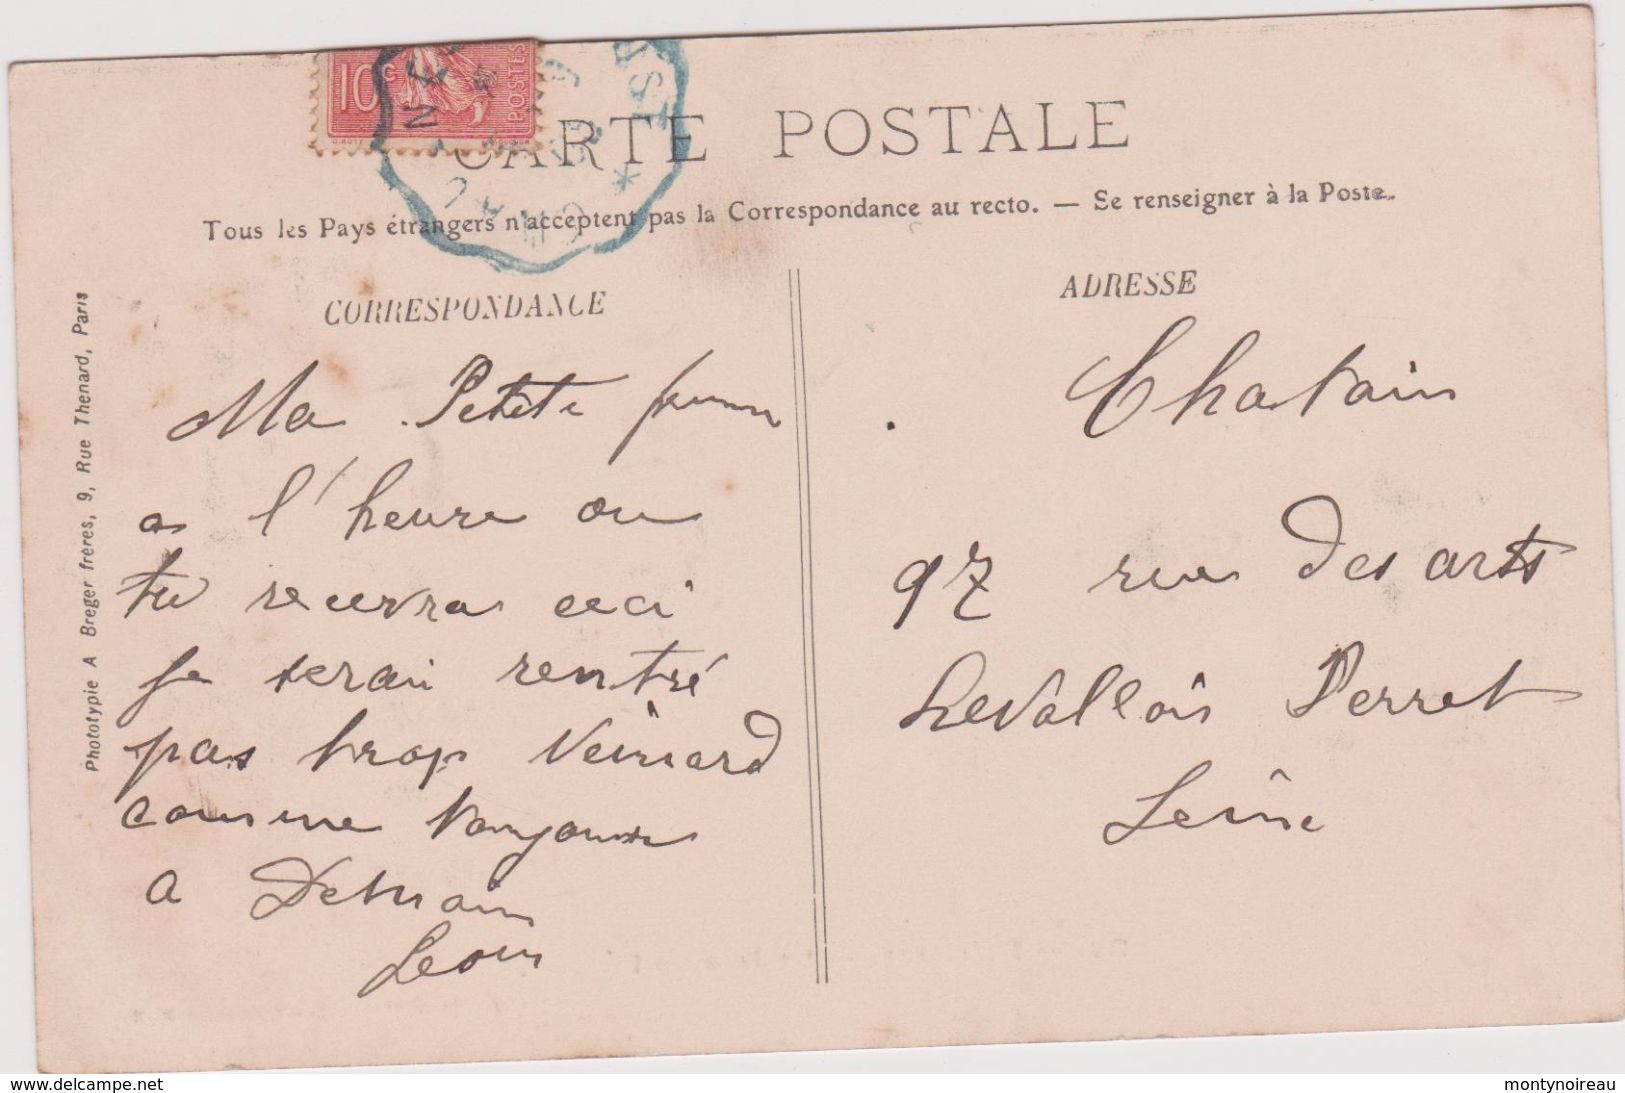 10c
POSTES
CARTE POSTALE
Tous les Pays étrangers n'acceptent pas la Correspondance au recto. — Se renseigner à la Poste.
CORRESPONDANCE
Ma Petite
a l'heure ou
tu recevra ceci
je serai rentré
pas trop veinard
comme toujours
a Demain
Leon
ADRESSE
Chatain
97 rue des arts
Levallois Perret
Seine
Phototypie A Breger frères, 9, Rue Thenard, Paris
delcampe.net
montynoireau